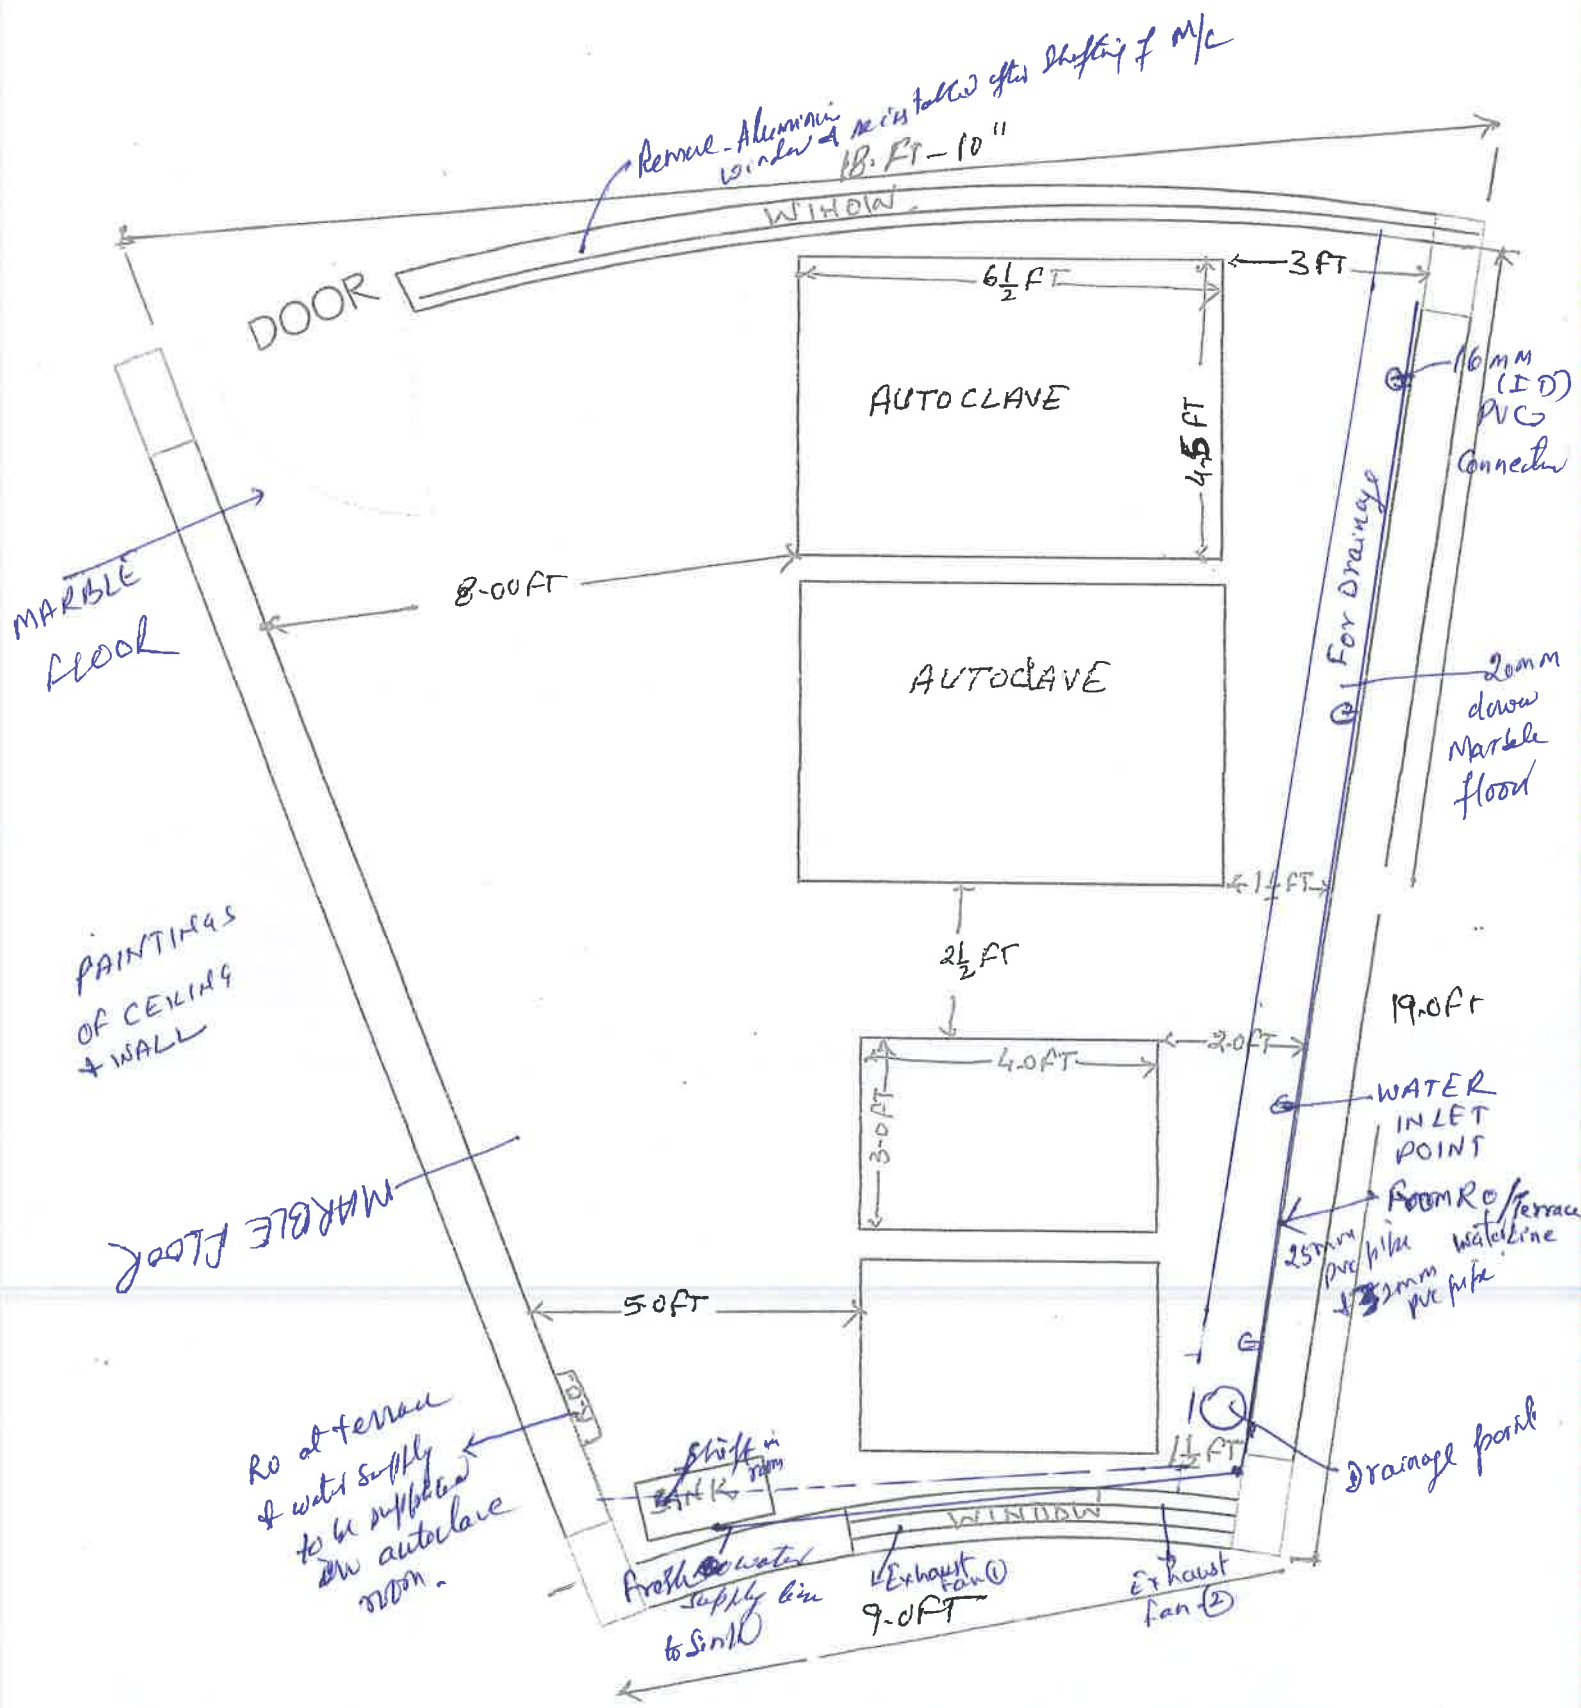 Remove Aluminium
window & reinstalled after Shifting of M/C
18. FT-10"
WIHOW.
DOOR
6 1/2 FT
3 FT
AUTOCLAVE
4.5 FT
16 mm
(I D)
PVC
Connector
For Drainage
MARBLE
FLOOR
8.00 FT
AUTOCLAVE
20mm
down
Marble
floor
1 1/2 FT
PAINTINGS
OF CEILING
& WALL
2 1/2 FT
19.0 Ft
2.0 FT
4.0 FT
3.0 FT
WATER
INLET
POINT
MARBLE FLOOR
FROM RO/Terrace
water Line
25mm
PVC pipe
+ 32mm
PVC pipe
5.0 FT
RO at terrace
& water supply
to be supplied
in autoclave
room.
Shift in
room
SINK
1 1/2 FT
Drainage point
WINDOW
Fresh water
supply line
to Sink
Exhaust
Fan ①
Exhaust
fan-②
9.0 FT